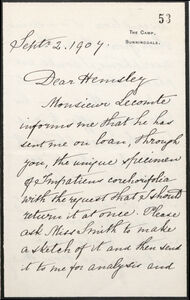 53
THE CAMP,
SUNNINGDALE.
Sept 2. 1907.
Dear Hemsley
Monsieur Lecomte
informs me that he has
sent me on loan, through
you, the unique specimen
of Impatiens corchorifolia
with the request that I should
return it at once. Please
ask Miss Smith to make
a sketch of it and then send
it to me for analysis and